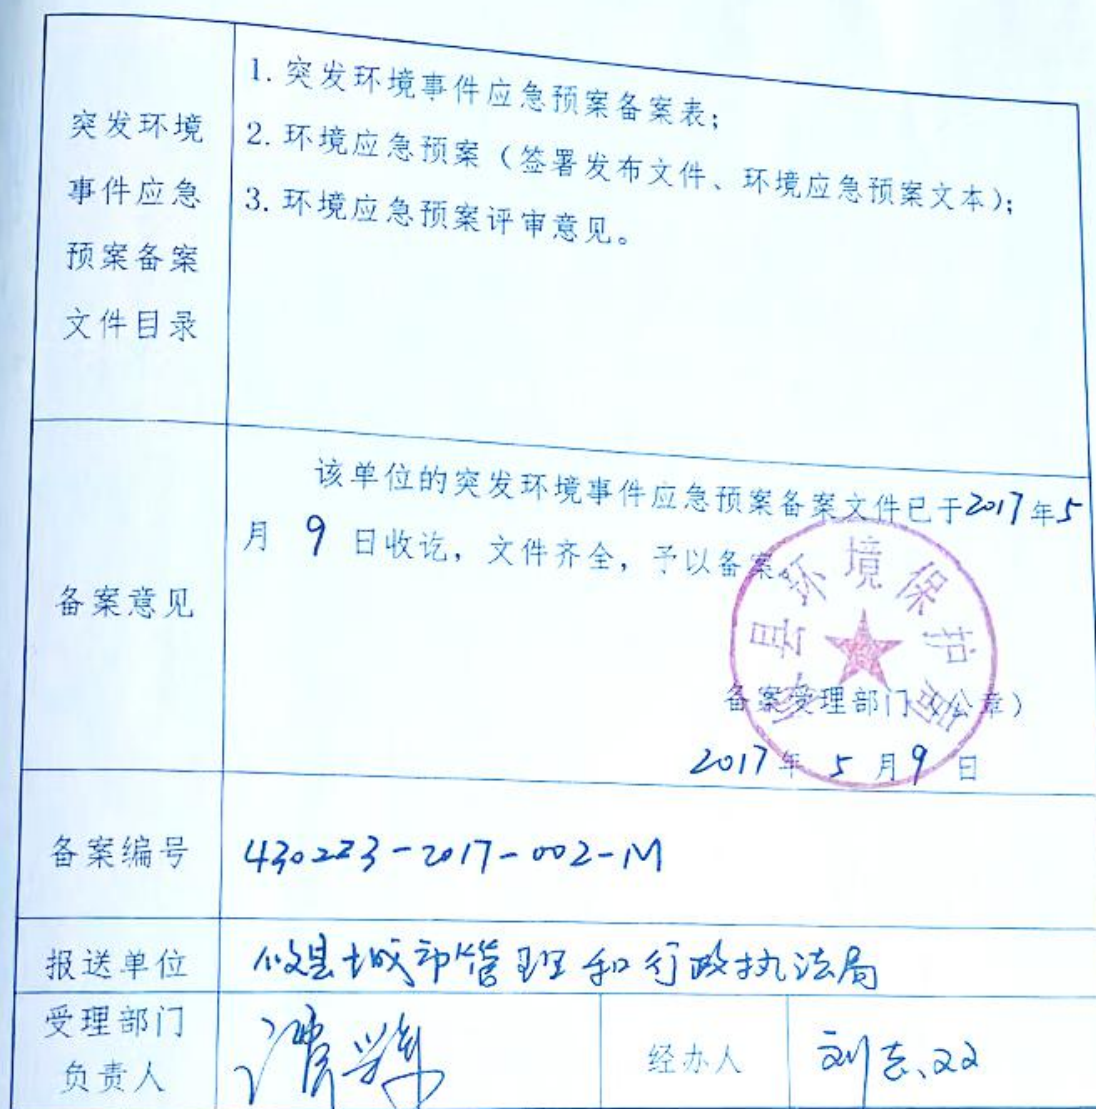 突发环境
事件应急
预案备案
文件目录
1. 突发环境事件应急预案备案表;
2. 环境应急预案（签署发布文件、环境应急预案文本);
3. 环境应急预案评审意见。
备案意见
该单位的突发环境事件应急预案备案文件已于2017年5
月 9 日收讫，文件齐全，予以备案。
攸县环境保护局
备案受理部门（公章）
2017年 5 月 9 日
备案编号
430223-2017-002-M
报送单位
攸县城市管理和行政执法局
受理部门
负责人
经办人